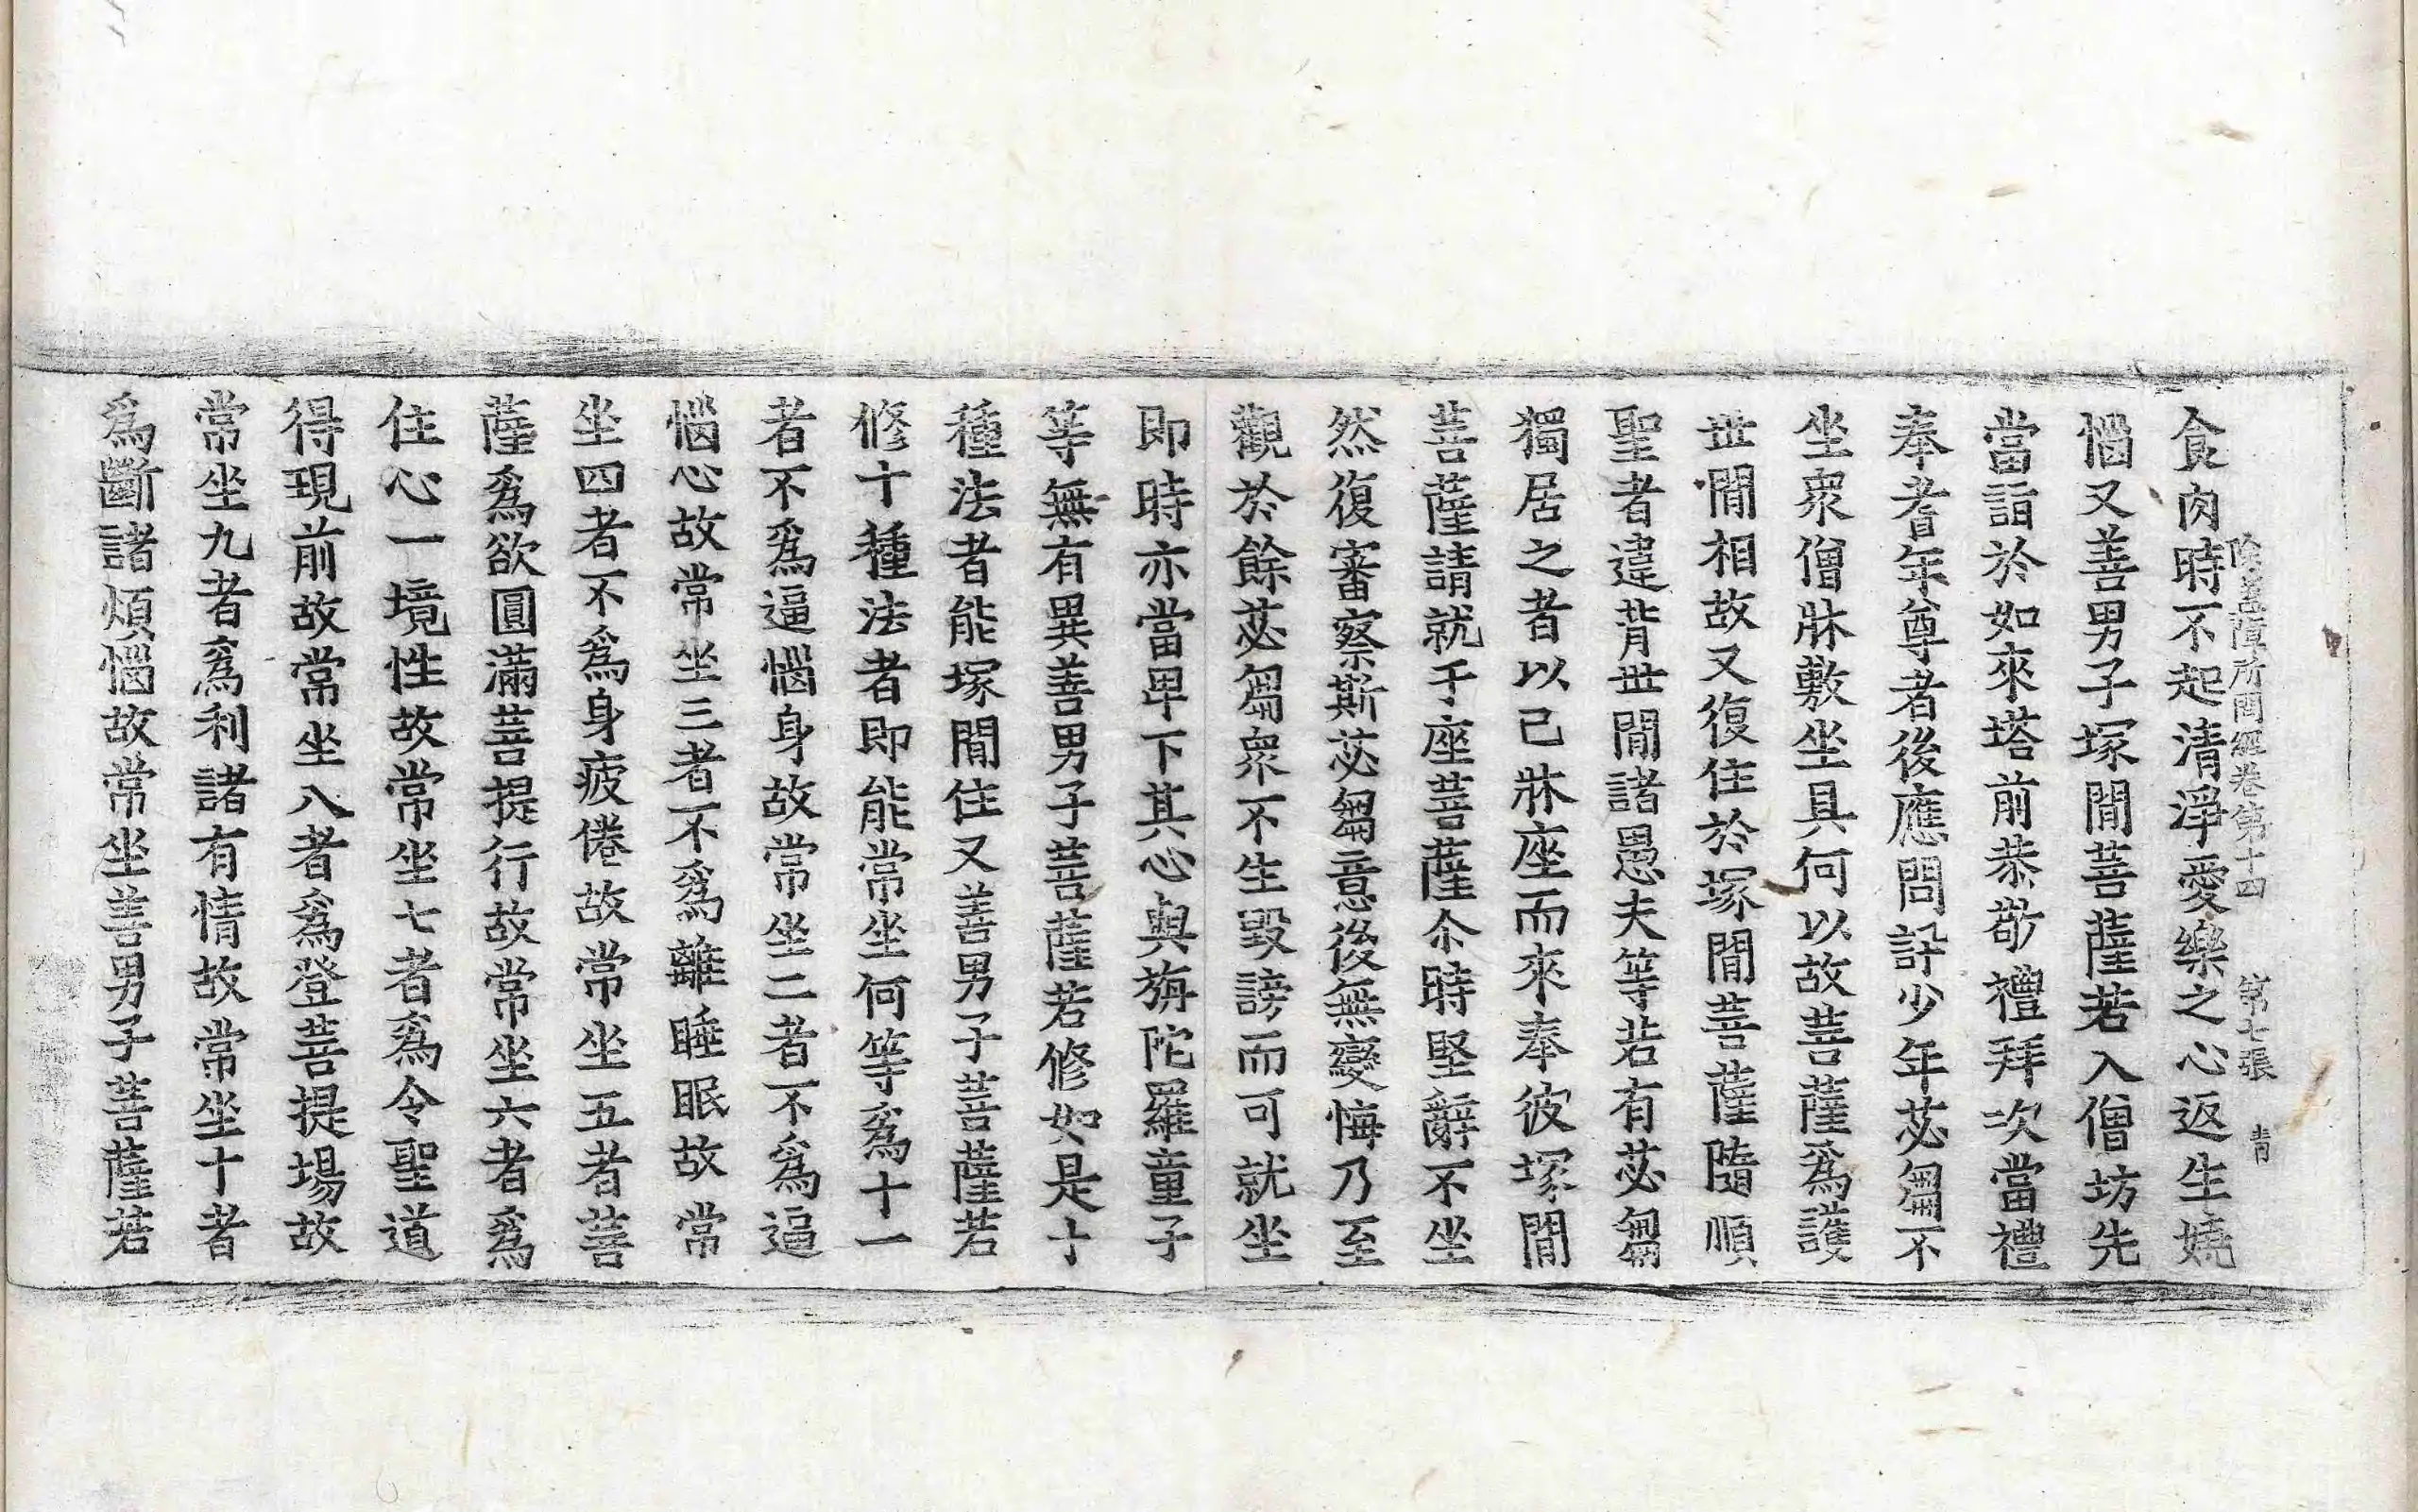 除蓋障所問經卷第十四 第七張 青
食肉時不起清淨愛樂之心返生嬈
惱又善男子塚閒菩薩若入僧坊先
當詣於如來塔前恭敬禮拜次當禮
奉耆年尊者後應問訊少年苾芻不
坐衆僧牀敷坐具何以故菩薩爲護
世閒相故又復住於塚閒菩薩隨順
聖者違背世閒諸愚夫等若有苾芻
獨居之者以己牀座而來奉彼塚閒
菩薩請就于座菩薩尒時堅辭不坐
然復審察斯苾芻意後無變悔乃至
觀於餘苾芻衆不生毀謗而可就坐
即時亦當卑下其心與旃陀羅童子
等無有異善男子菩薩若修如是十
種法者能塚閒住又善男子菩薩若
修十種法者即能常坐何等爲十一
者不爲逼惱身故常坐二者不爲逼
惱心故常坐三者不爲離睡眠故常
坐四者不爲身疲倦故常坐五者菩
薩爲欲圓滿菩提行故常坐六者爲
住心一境性故常坐七者爲令聖道
得現前故常坐八者爲登菩提場故
常坐九者爲利諸有情故常坐十者
爲斷諸煩惱故常坐善男子菩薩若